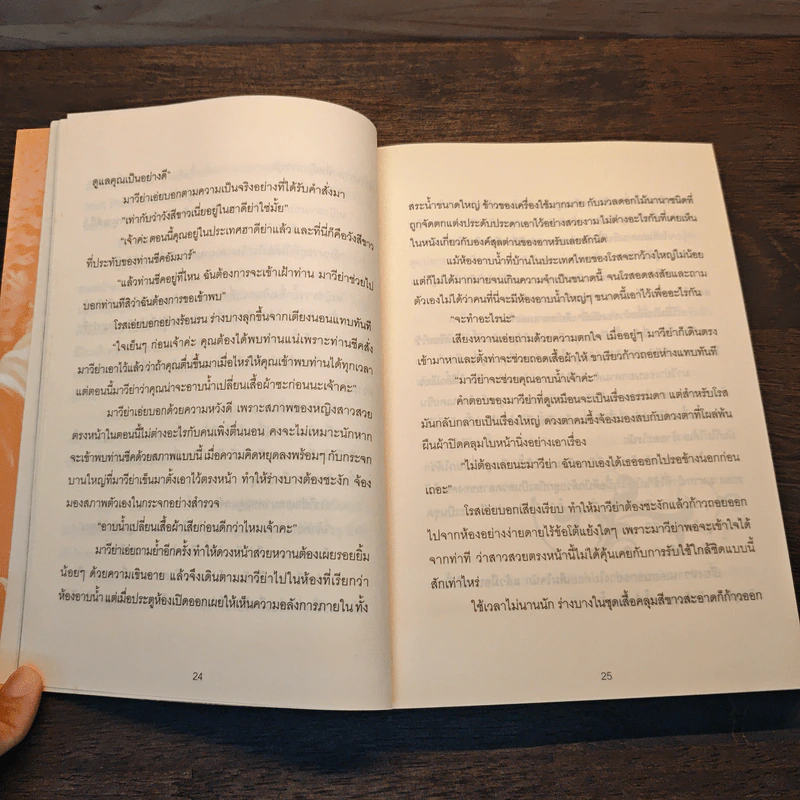 ดูแลคุณเป็นอย่างดี"
มาวีย่าเอ่ยบอกตามความเป็นจริงอย่างที่ได้รับคำสั่งมา
"เท่ากับว่าวังสีขาวเนี่ยอยู่ในฮาดีย่าใช่มั้ย"
"เจ้าค่ะ ตอนนี้คุณอยู่ในประเทศฮาดีย่าแล้ว และที่นี่ก็คือวังสีขาว
ที่ประทับของท่านชีคอัมมาร์"
"แล้วท่านชีคอยู่ที่ไหน ฉันต้องการจะเข้าเฝ้าท่าน มาวีย่าช่วยไป
บอกท่านทีสิว่าฉันต้องการขอเข้าพบ"
โรสเอ่ยบอกอย่างร้อนรน ร่างบางลุกขึ้นจากเตียงนอนแทบทันที
"ใจเย็นๆ ก่อนเจ้าค่ะ คุณต้องได้พบท่านแน่เพราะท่านชีคสั่ง
มาวีย่าเอาไว้แล้วว่าถ้าคุณตื่นขึ้นมาเมื่อไหร่ให้คุณเข้าพบท่านได้ทุกเวลา
แต่ตอนนี้มาวีย่าว่าคุณน่าจะอาบน้ำเปลี่ยนเสื้อผ้าซะก่อนนะเจ้าคะ"
มาวีย่าเอ่ยบอกด้วยความหวังดี เพราะสภาพของหญิงสาวสวย
ตรงหน้าในตอนนี้ไม่ต่างอะไรกับคนเพิ่งตื่นนอน คงจะไม่เหมาะนักหาก
จะเข้าพบท่านชีคด้วยสภาพแบบนี้ เมื่อความคิดหยุดลงพร้อมๆ กับกระจก
บานใหญ่ที่มาวีย่าเข็นมาตั้งเอาไว้ตรงหน้า ทำให้ร่างบางต้องชะงัก จ้อง
มองสภาพตัวเองในกระจกอย่างสำรวจ
"อาบน้ำเปลี่ยนเสื้อผ้าเสียก่อนดีกว่าไหมเจ้าคะ"
มาวีย่าเอ่ยถามย้ำอีกครั้ง ทำให้ดวงหน้าสวยหวานต้องเผยรอยยิ้ม
น้อยๆ ด้วยความเขินอาย แล้วจึงเดินตามมาวีย่าไปในห้องที่เรียกว่า
ห้องอาบน้ำ แต่เมื่อประตูห้องเปิดออกเผยให้เห็นความอลังการภายใน ทั้ง
24
สระน้ำขนาดใหญ่ ข้าวของเครื่องใช้มากมาย กับมวลดอกไม้นานาชนิดที่
ถูกจัดตกแต่งประดับประดาเอาไว้อย่างสวยงาม ไม่ต่างอะไรกับที่เคยเห็น
ในหนังเกี่ยวกับองค์สุลต่านของอาหรับเลยสักนิด
แม้ห้องอาบน้ำที่บ้านในประเทศไทยของโรสจะกว้างใหญ่ไม่น้อย
แต่ก็ไม่ได้มากมายจนเกินความจำเป็นขนาดนี้ จนโรสอดสงสัยและถาม
ตัวเองไม่ได้ว่าคนที่นี่จะมีห้องอาบน้ำใหญ่ๆ ขนาดนี้เอาไว้เพื่ออะไรกัน
"จะทำอะไรน่ะ"
เสียงหวานเอ่ยถามด้วยความตกใจ เมื่ออยู่ๆ มาวีย่าก็เดินตรง
เข้ามาหาและตั้งท่าจะช่วยถอดเสื้อผ้าให้ ขาเรียวก้าวถอยห่างแทบทันที
"มาวีย่าจะช่วยคุณอาบน้ำเจ้าค่ะ"
คำตอบของมาวีย่าที่ดูเหมือนจะเป็นเรื่องธรรมดา แต่สำหรับโรส
มันกลับกลายเป็นเรื่องใหญ่ ดวงตาคมซึ้งจ้องมองสบกับดวงตาที่โผล่พ้น
ผืนผ้าปิดคลุมใบหน้านิ่งอย่างเอาเรื่อง
"ไม่ต้องเลยนะมาวีย่า ฉันอาบเองได้เธอออกไปรอข้างนอกก่อน
เถอะ"
โรสเอ่ยบอกเสียงเรียบ ทำให้มาวีย่าต้องชะงักแล้วก้าวถอยออก
ไปจากห้องอย่างง่ายดายไร้ข้อโต้แย้งใดๆ เพราะมาวีย่าพอจะเข้าใจได้
จากท่าที ว่าสาวสวยตรงหน้านี้ไม่ได้คุ้นเคยกับการรับใช้ใกล้ชิดแบบนี้
สักเท่าไหร่
ใช้เวลาไม่นานนัก ร่างบางในชุดเสื้อคลุมสีขาวสะอาดก็ก้าวออก
25